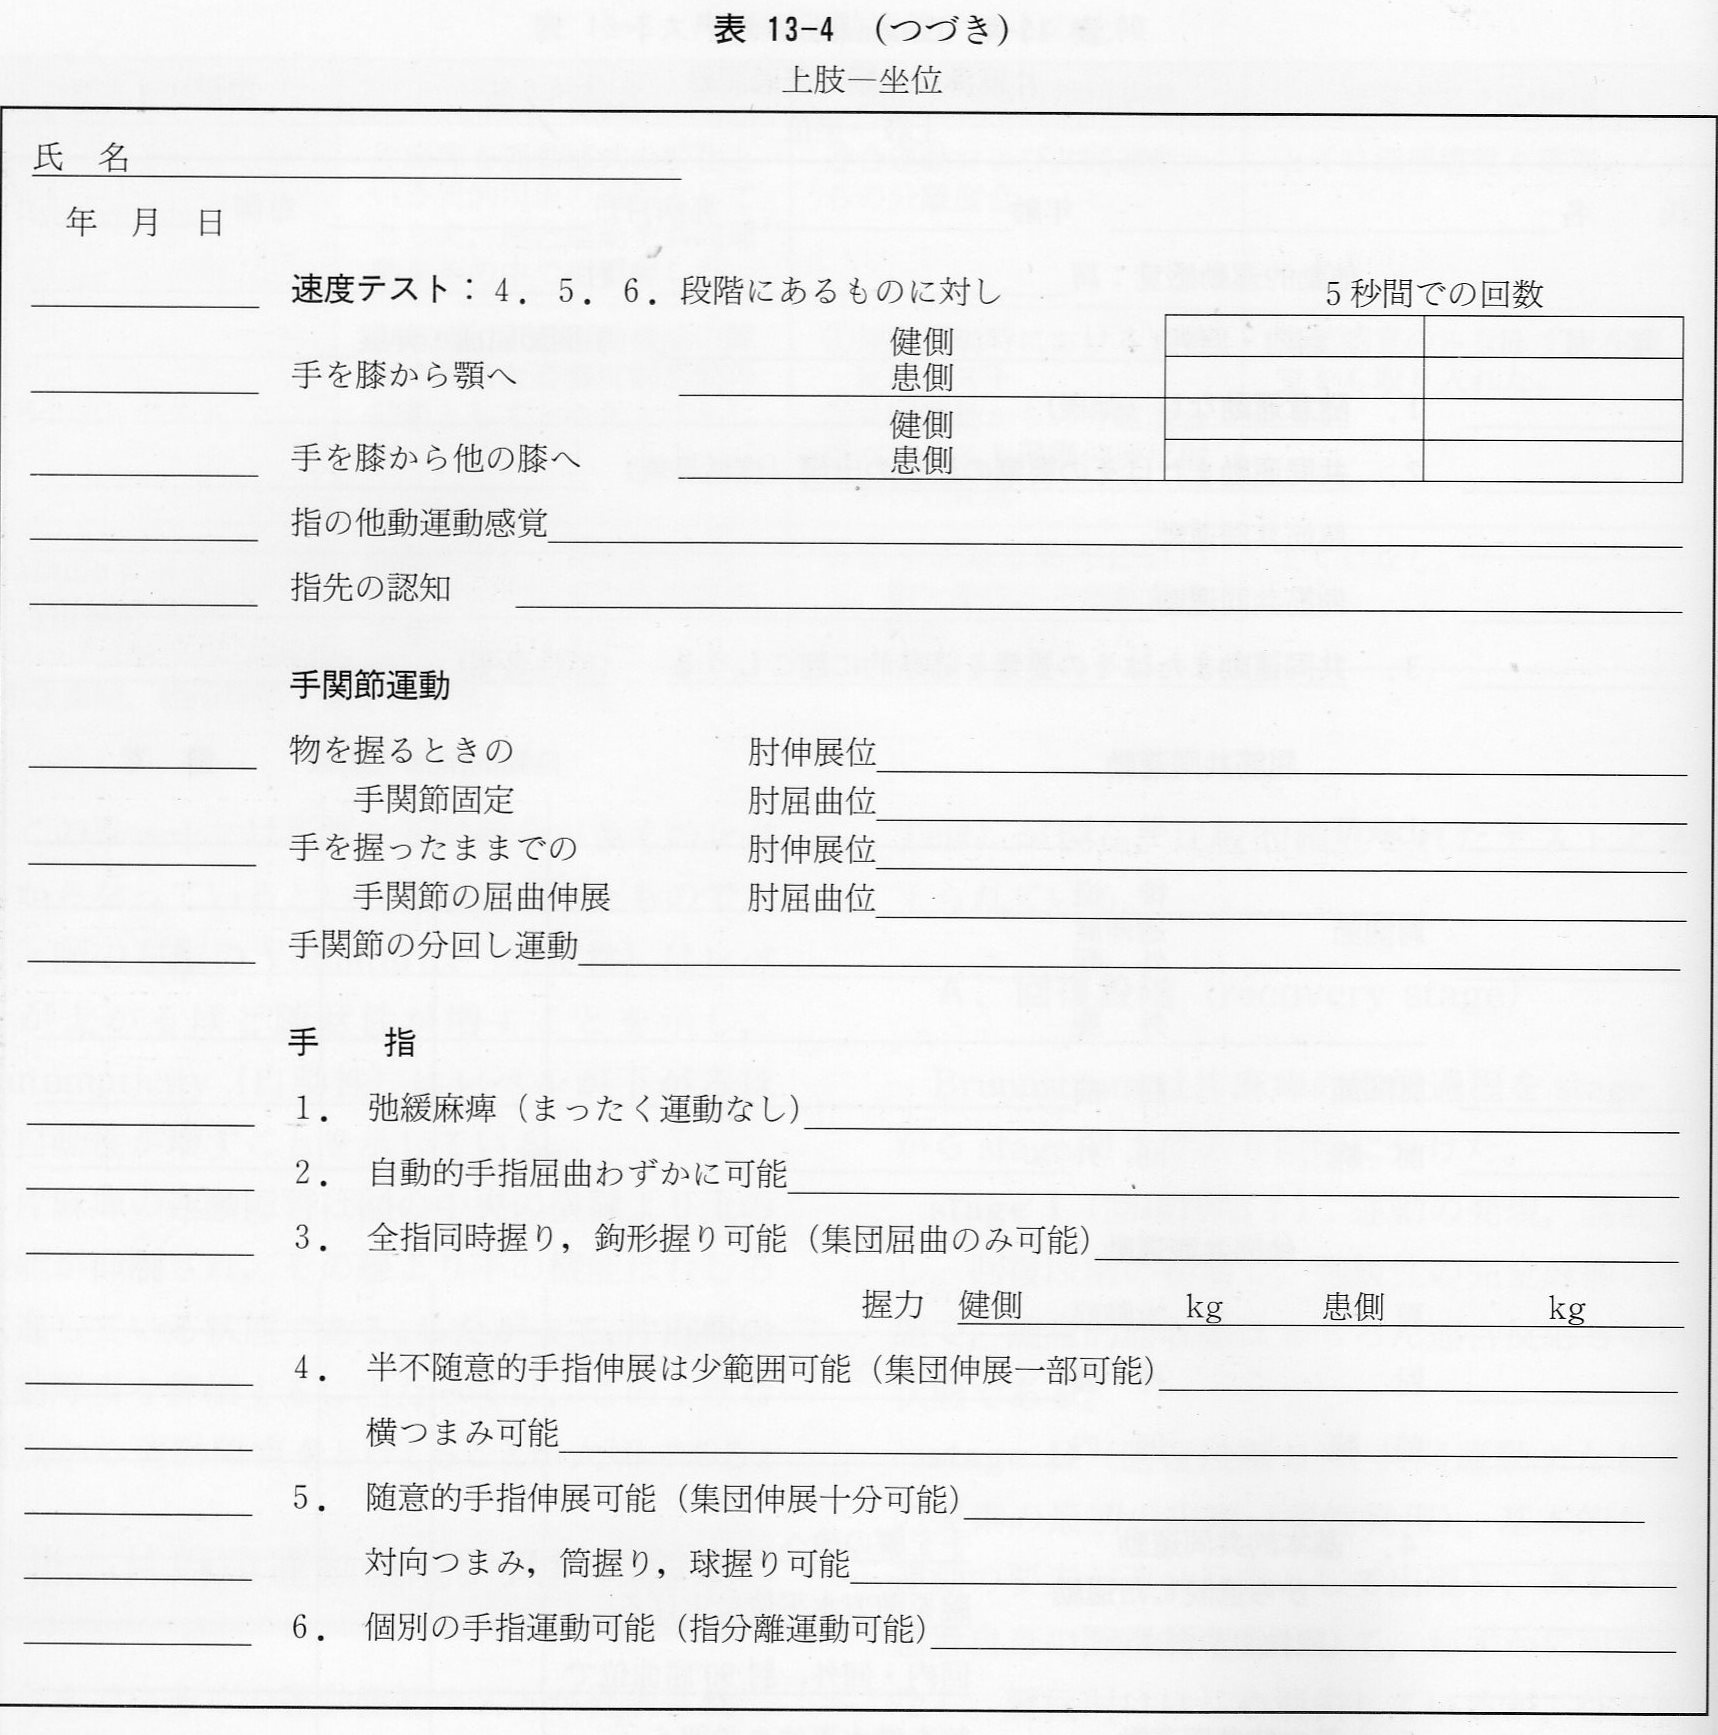 表 13-4 (つづき)
上肢―坐位
氏 名
年 月 日
速度テスト：4．5．6．段階にあるものに対し
5秒間での回数
健側
手を膝から顎へ 患側
健側
手を膝から他の膝へ 患側
指の他動運動感覚
指先の認知
手関節運動
物を握るときの 肘伸展位
手関節固定 肘屈曲位
手を握ったままでの 肘伸展位
手関節の屈曲伸展 肘屈曲位
手関節の分回し運動
手 指
1． 弛緩麻痺（まったく運動なし）
2． 自動的手指屈曲わずかに可能
3． 全指同時握り，鉤形握り可能（集団屈曲のみ可能）
握力 健側 kg 患側 kg
4． 半不随意的手指伸展は少範囲可能（集団伸展一部可能）
横つまみ可能
5． 随意的手指伸展可能（集団伸展十分可能）
対向つまみ，筒握り，球握り可能
6． 個別の手指運動可能（指分離運動可能）